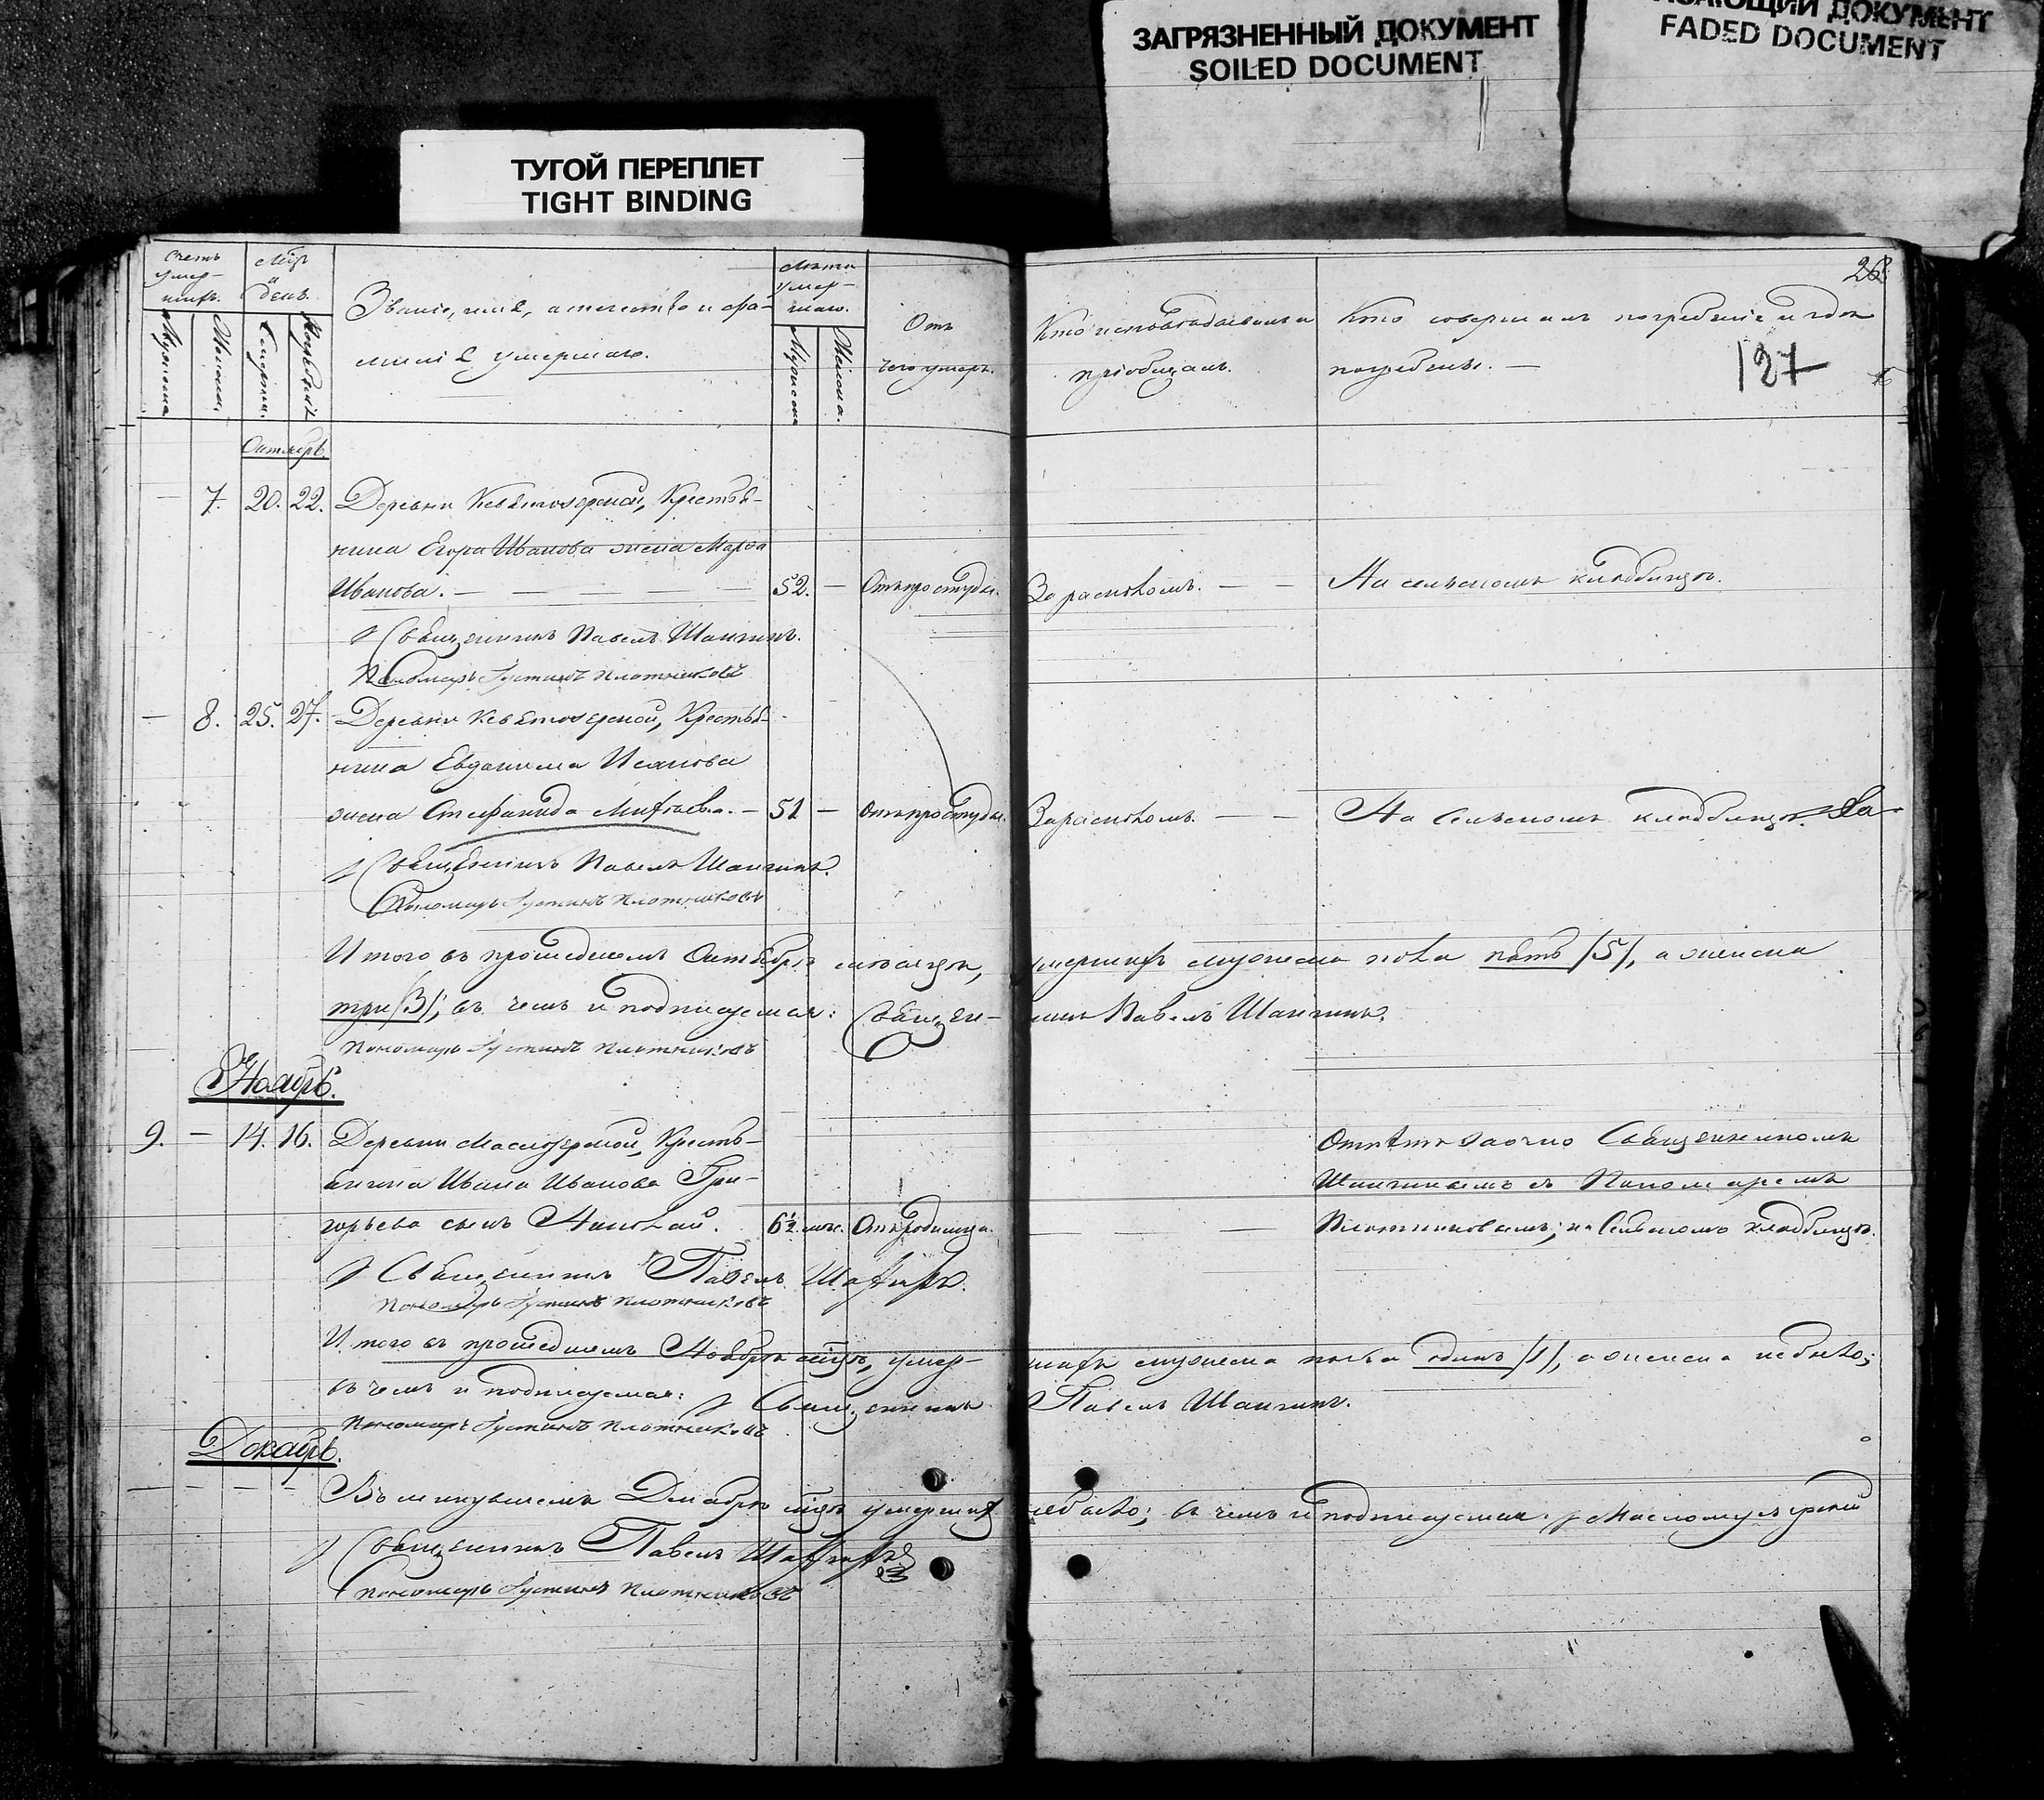 ЗАГРЯЗНЕННЫЙ ДОКУМЕНТ
SOILED DOCUMENT
ДОКУМЕНТ
FADED DOCUMENT
ТУГОЙ ПЕРЕПЛЕТ
TIGHT BINDING
Счетъ умер-шихъ.
Мужеска
Женска.
Мцъ и день.
Смерти.
Погребенія
Званіе, имя, отечество и фа-
милія умершаго.
Лѣта умер-шаго.
Мужеска
Женска.
Отъ
чего умеръ.
Кто исповѣдывалъ и
пріобщалъ.
Кто совершалъ погребеніе и гдѣ
погребены.
127
Октябрь.
— 7. 20. 22. Деревни Кевятозерской, Крестья-
нина Егора Иванова жена Марѳа
Иванова. — 52. — Отъ простуды. За расколомъ. — — На сельскомъ кладбищѣ.
Священникъ Павелъ Шангинъ.
Пономарь Іустинъ Плотниковъ
— 8. 25. 27. Деревни Кевятозерской, Крестья-
нина Евдокима Исакова
жена Стефанида Михѣева. — 51 — Отъ простуды. За расколомъ. — — На сельскомъ кладбищѣ.
Священникъ Павелъ Шангинъ.
Пономарь Іустинъ Плотниковъ
Итого въ прошедшемъ Октябрѣ мѣсяцѣ, умершихъ мужеска пола пять /5/, а женска
три /3/; въ чемъ и подписуемся: Священ-никъ Павелъ Шангинъ.
Пономарь Іустинъ Плотниковъ
Ноябрь.
9. — 14. 16. Деревни Маслозерской, Кресть-
янина Ивана Иванова Гри-
горьева сынъ Николай. 6½ мѣс. Отъ родимца.
Отпѣтъ заочно Священникомъ
Шангинымъ съ Пономаремъ
Плотниковымъ; на Сельскомъ кладбищѣ.
Священникъ Павелъ Шангинъ.
Пономарь Іустинъ Плотниковъ
Итого въ прошедшемъ Ноябрѣ мцѣ, умер-шихъ мужеска пола одинъ /1/, а женска не было;
въ чемъ и подписуемся: Священникъ Павелъ Шангинъ.
Пономарь Іустинъ Плотниковъ
Декабрь.
— — — — Въ минувшемъ Декабрѣ мцѣ умершихъ не было; въ чемъ и подписуемся:
Священникъ Павелъ Шангинъ
Пономарь Іустинъ Плотниковъ